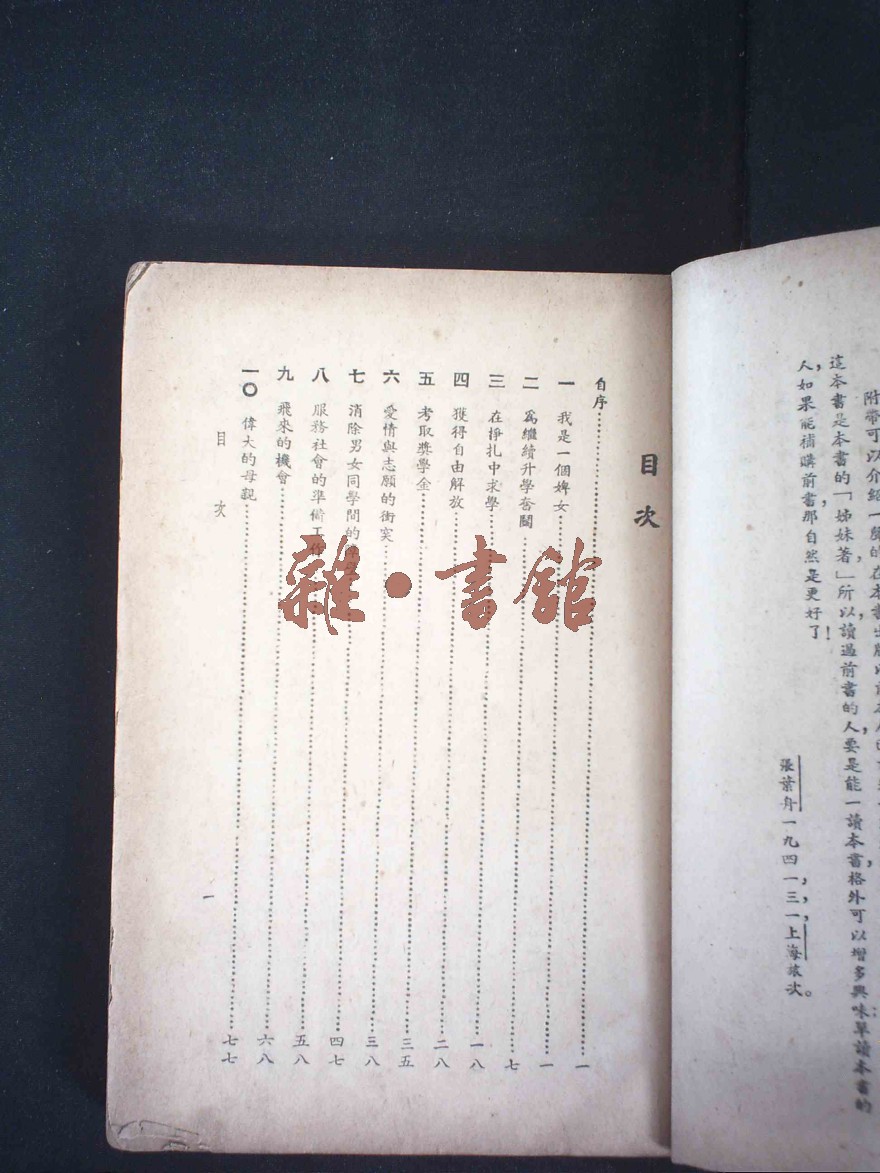 這本書是本書的「姊妹著」所以讀過前書的人,要是能一讀本書,格外可以增多興味;單讀本書的
人,如果能補購前書,那自然是更好了!
張葉舟一九四一,三,一,上海旅次。
目次
自序……一
一 我是一個婢女……一
二 爲繼續升學奮鬭……七
三 在掙扎中求學……一八
四 獲得自由解放……二八
五 考取獎學金……三五
六 愛情與志願的衝突……三八
七 消除男女同學間的……四七
八 服務社會的準備工作……五八
九 飛來的機會……六八
一〇 偉大的母親……七七
目 次
一
雜·書館